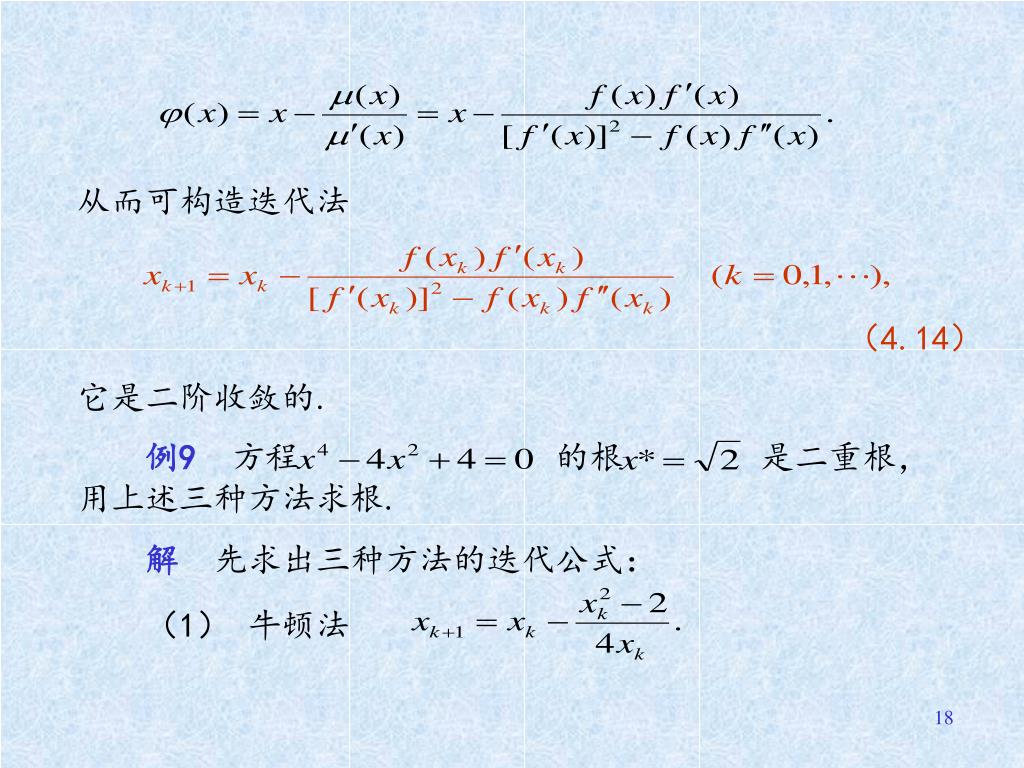 φ(x) = x − μ(x)/μ′(x) = x − f(x)f′(x)/([f′(x)]² − f(x)f″(x)).
从而可构造迭代法
xₖ₊₁ = xₖ − f(xₖ)f′(xₖ)/([f′(xₖ)]² − f(xₖ)f″(xₖ)) (k = 0,1,⋯),
（4.14）
它是二阶收敛的.
例9 方程x⁴ − 4x² + 4 = 0 的根x* = √2 是二重根，
用上述三种方法求根.
解 先求出三种方法的迭代公式：
（1） 牛顿法 xₖ₊₁ = xₖ − (xₖ² − 2)/(4xₖ).
18